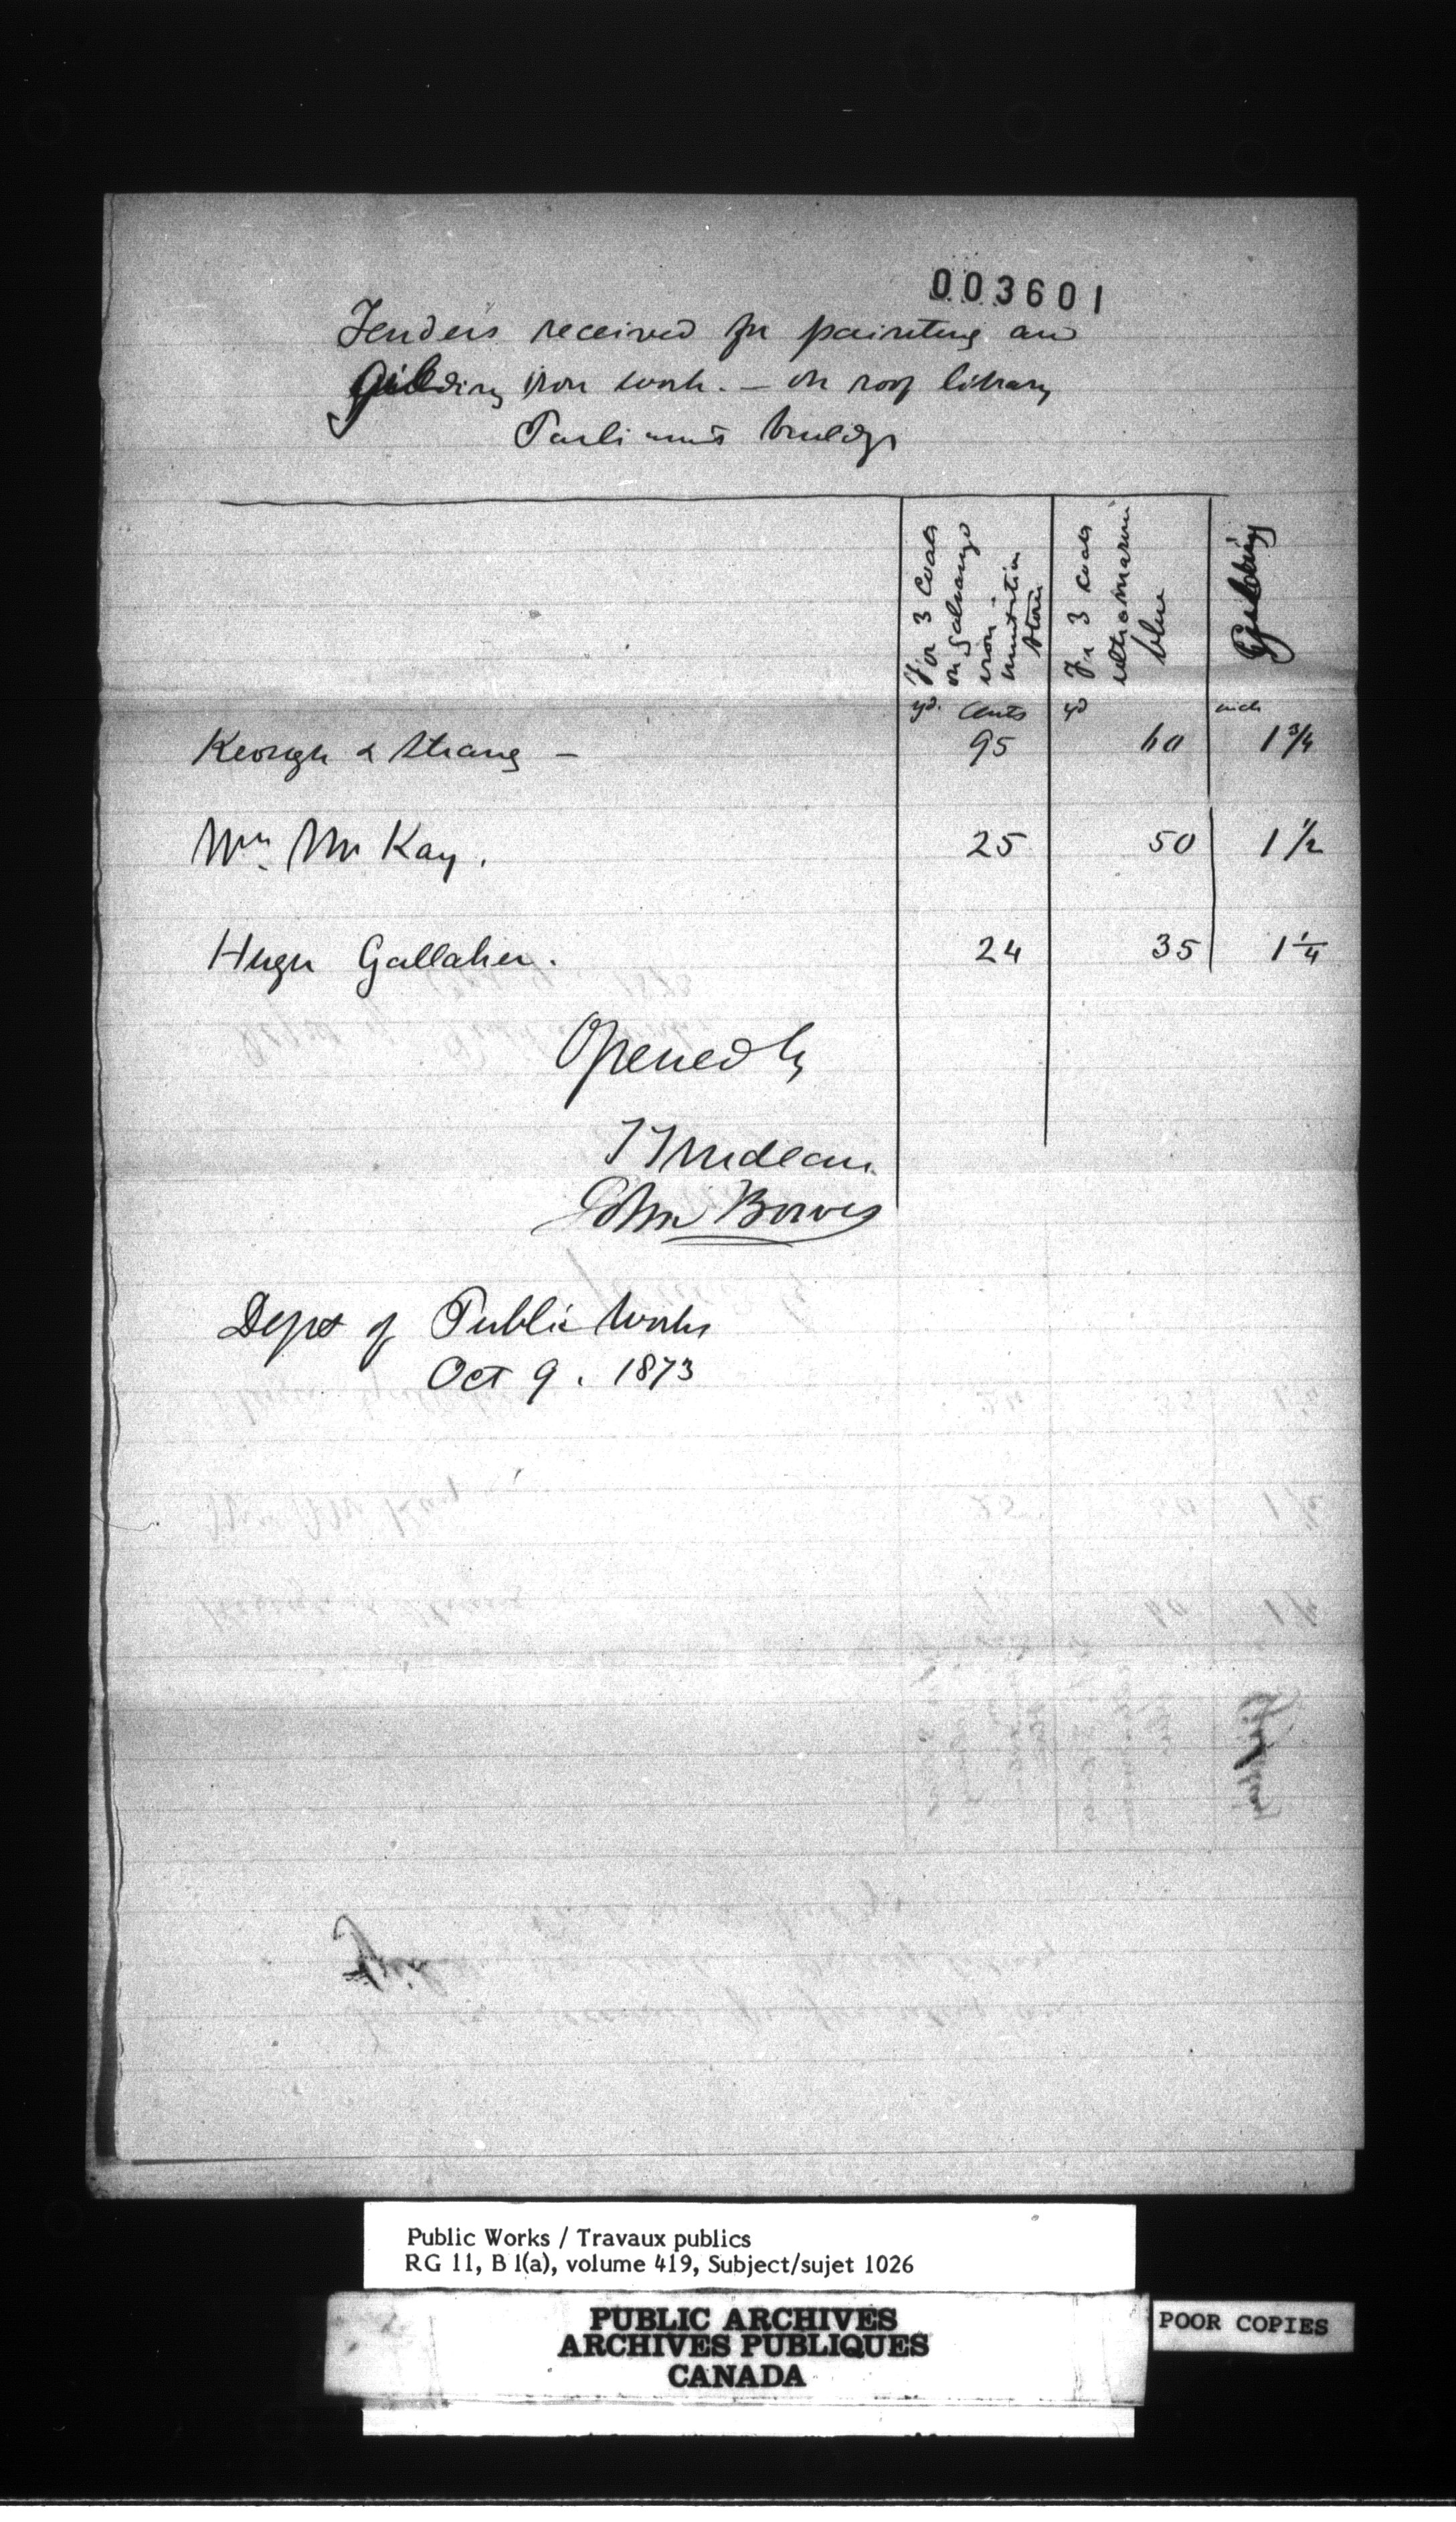 003601
Tenders received for painting and
Gilding iron work. — on roof library
Parliament buildgs
For 3 coats
on galvanized
iron -
imitation
stone
For 3 coats
ultramarine
blue
Gilding
yd. Cents yd inch
Keough & Strang — 95 60 1 3/4
Wm McKay. 25 50 1 1/2
Hugh Gallaher. 24 35 1 1/4
Opened by
T Trudeau
John Bowes
Dept of Public Works
Oct 9. 1873
Public Works / Travaux publics
RG 11, B 1(a), volume 419, Subject/sujet 1026
PUBLIC ARCHIVES
ARCHIVES PUBLIQUES
CANADA
POOR COPIES